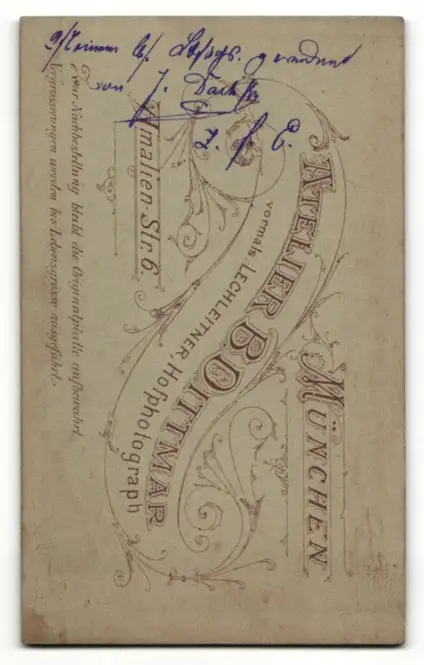 ATELIER B. DITTMAR
vormals LECHLEITNER, Hofphotograph
MÜNCHEN
Amalien-Str. 6.
Zur Nachbestellung bleibt die Originalplatte aufbewahrt.
Vergrösserungen werden bis Lebensgrösse ausgeführt.
von J.